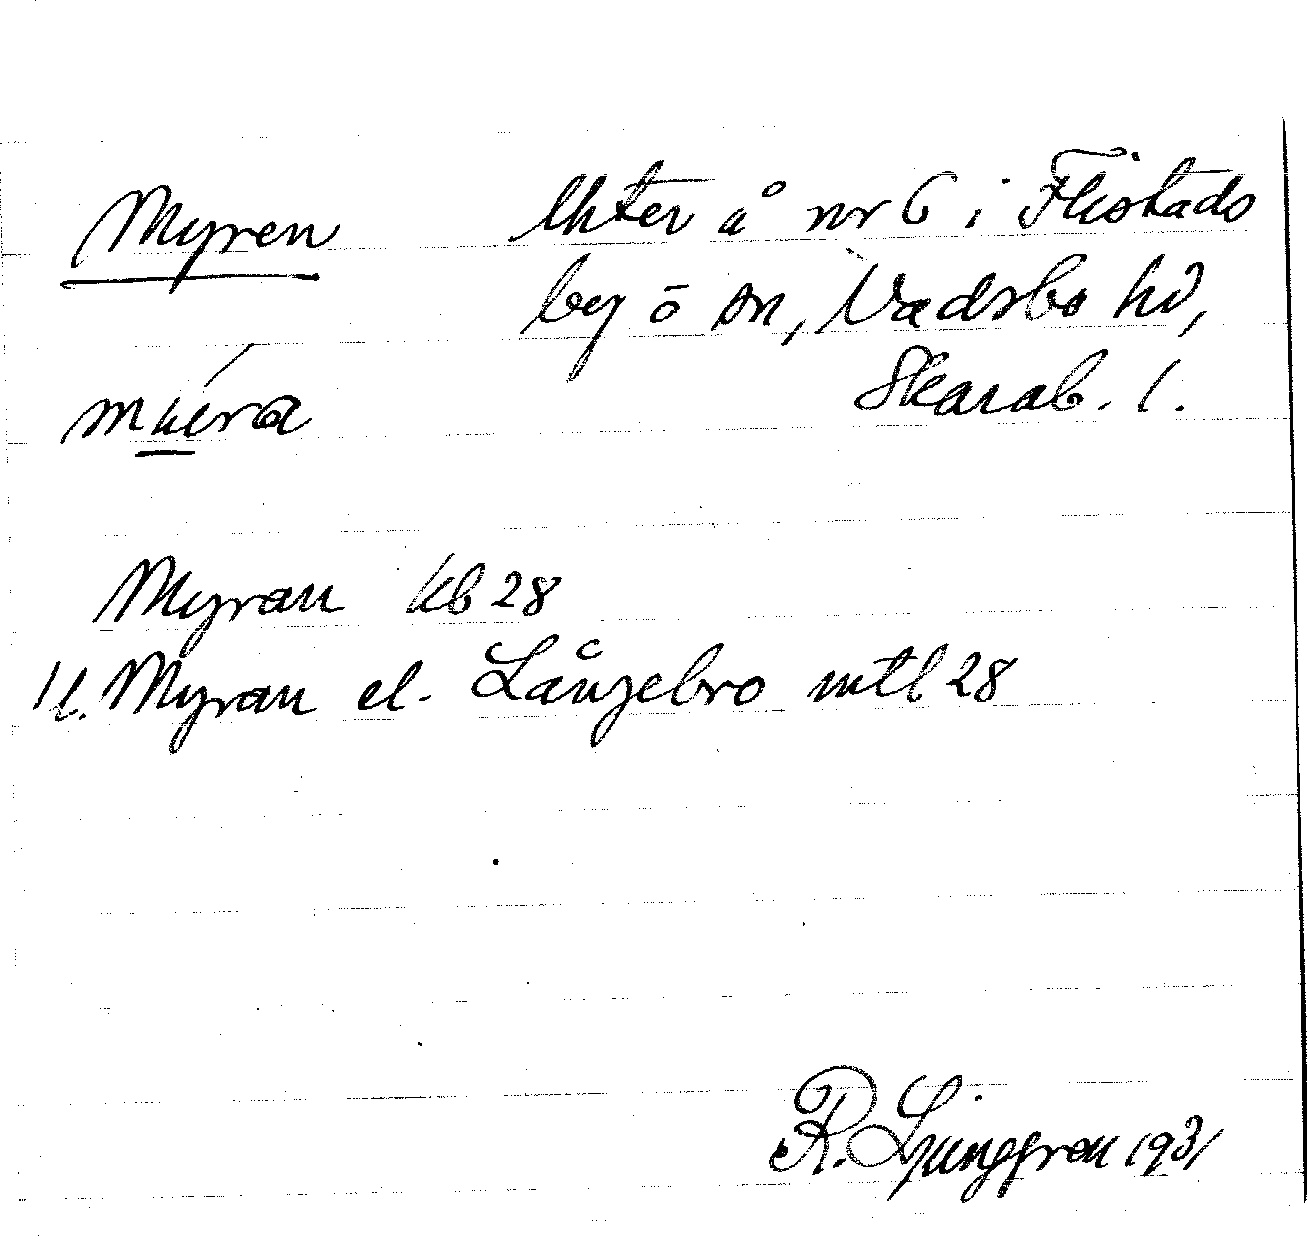 Myren lhter å nr 6 i Flistads
by o sn, Vadsbo hd,
Skarab. l.
Myran kb 28
Myran el. Långebro mtl 28
R. Ljunggren 1931